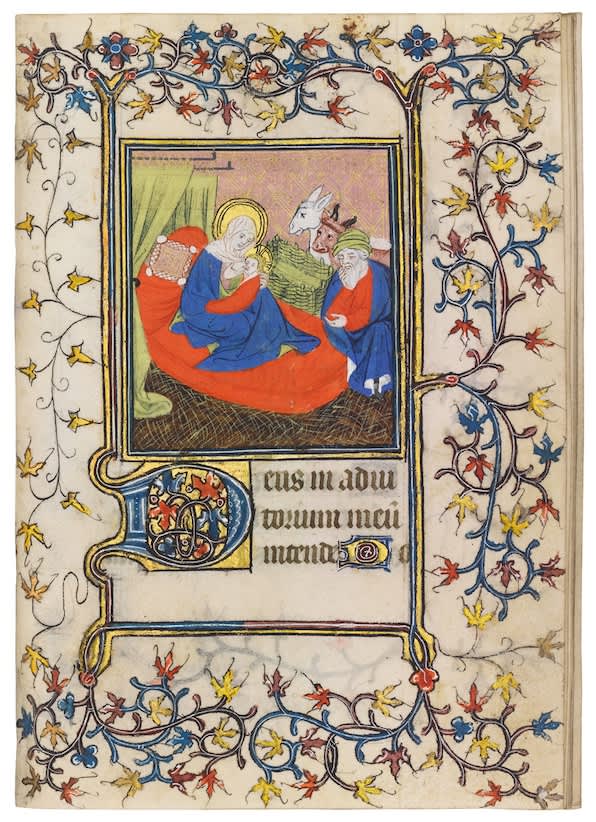 52
Deus in adiu
torium meū
intende Do